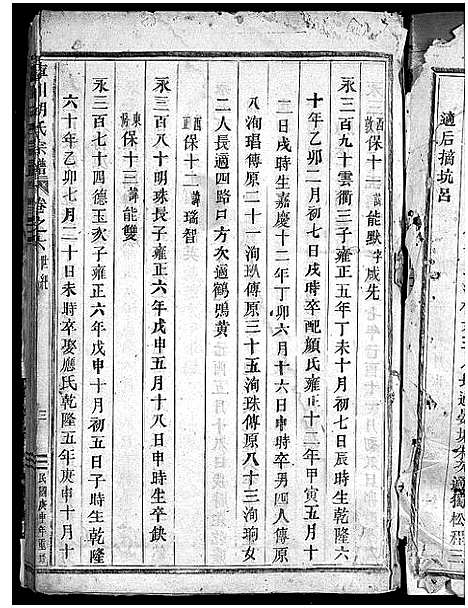 適后描坑呂
適獨松程三
酉敦保十一諱能默字咸先
永三百九十雲衢三子雍正五年丁未十月初七日辰時生乾隆六
十年乙卯二月初七日戌時卒配顏氏雍正十二年甲寅五月十
二日戌時生嘉慶十二年丁卯六月十六日申時卒男四人傳原
八洵琩傳原二十一洵玖傳原三十五洵珠傳原八十三洵珦女
二人長適四路口方次適鶴鴞黄
酉正保十二諱瑤智
永三百八十明珠長子雍正六年戊申五月十八日申時生卒缺
東脩保十三諱能雙
永三百七十四德玉亥子雍正六年戊申十月初五日子時生乾隆
六十年乙卯七月二十日未時卒娶應氏乾隆五年庚申十月十
川胡氏宗譜 卷之 世紀 三 民國庚申年重